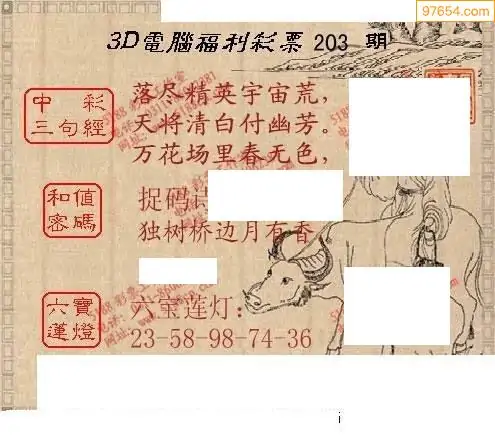 97654.com
3D電腦福利彩票 203 期
中彩
三句經
落尽精英宇宙荒，
天将清白付幽芳。
万花场里春无色，
和值
密碼
捉码
独树桥边月有香
六寶
蓮燈
六宝莲灯：
23-58-98-74-36